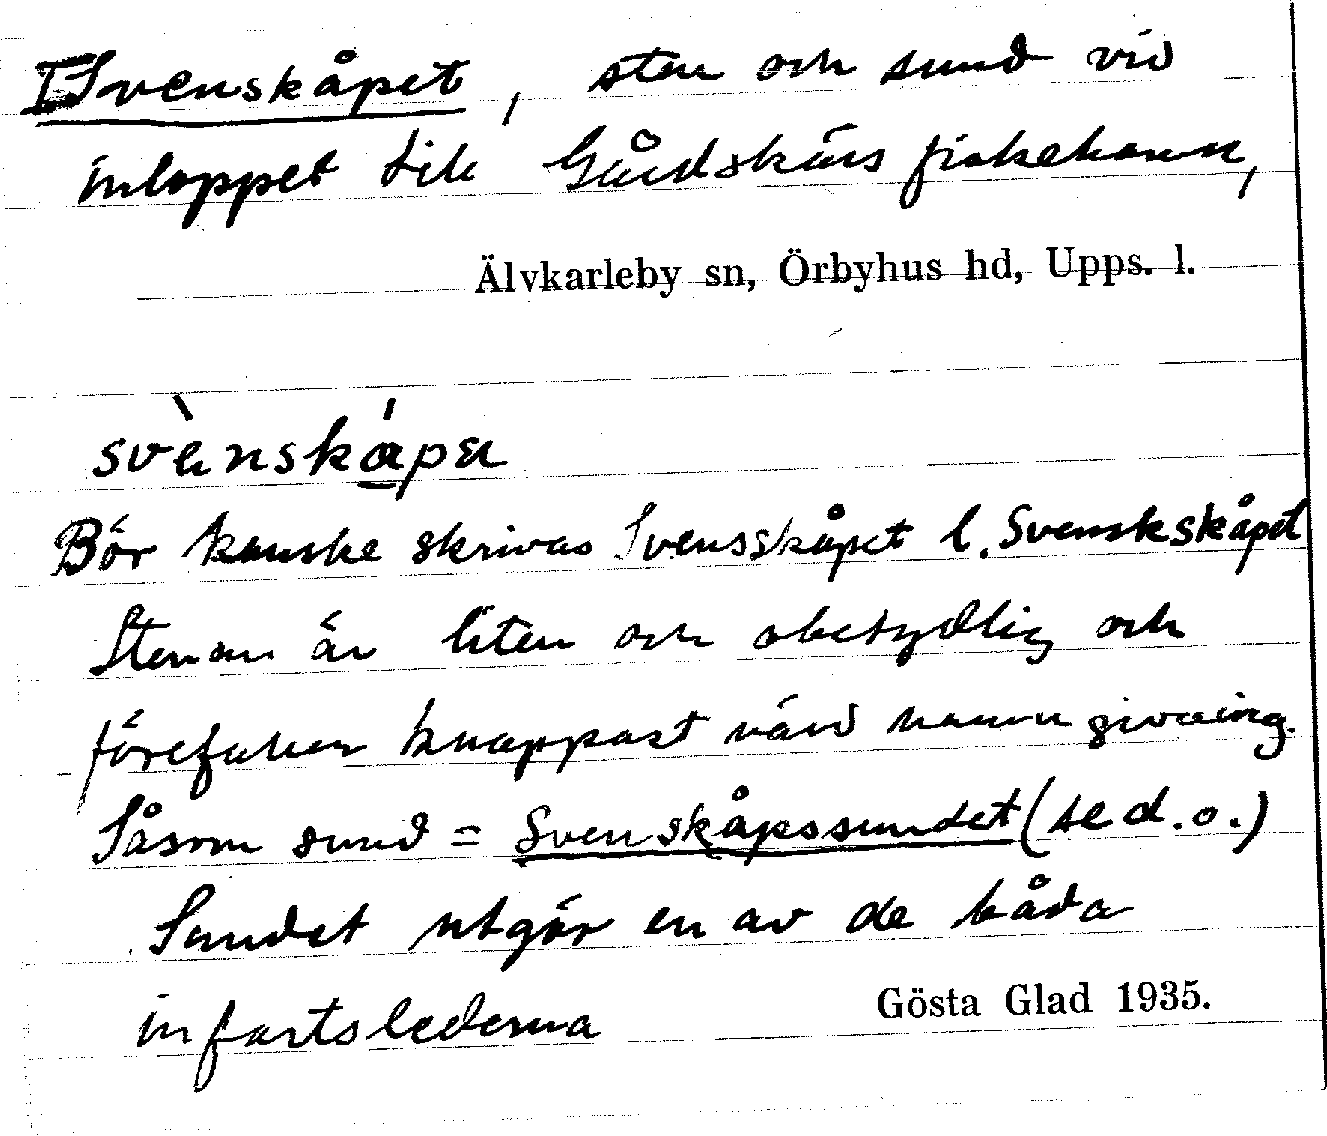 Svenskåpet, sten och sund vid
inloppet till Gårdskärs fiskehamn,
Älvkarleby sn, Örbyhus hd, Upps. l.
svènskápɛt
Bör kanske skrivas Svensskåpet l. Svenskskåpet
Stenen är liten och obetydlig och
förefaller knappast värd namngivning.
Såsom sund = Svenskåpssundet (se d.o.)
Sundet utgör en av de båda
infartslederna
Gösta Glad 1935.